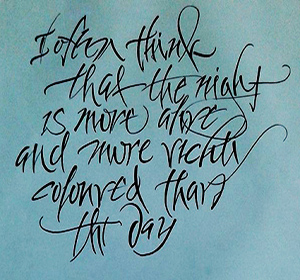 I often think
that the night
is more alive
and more richly
coloured than
the day